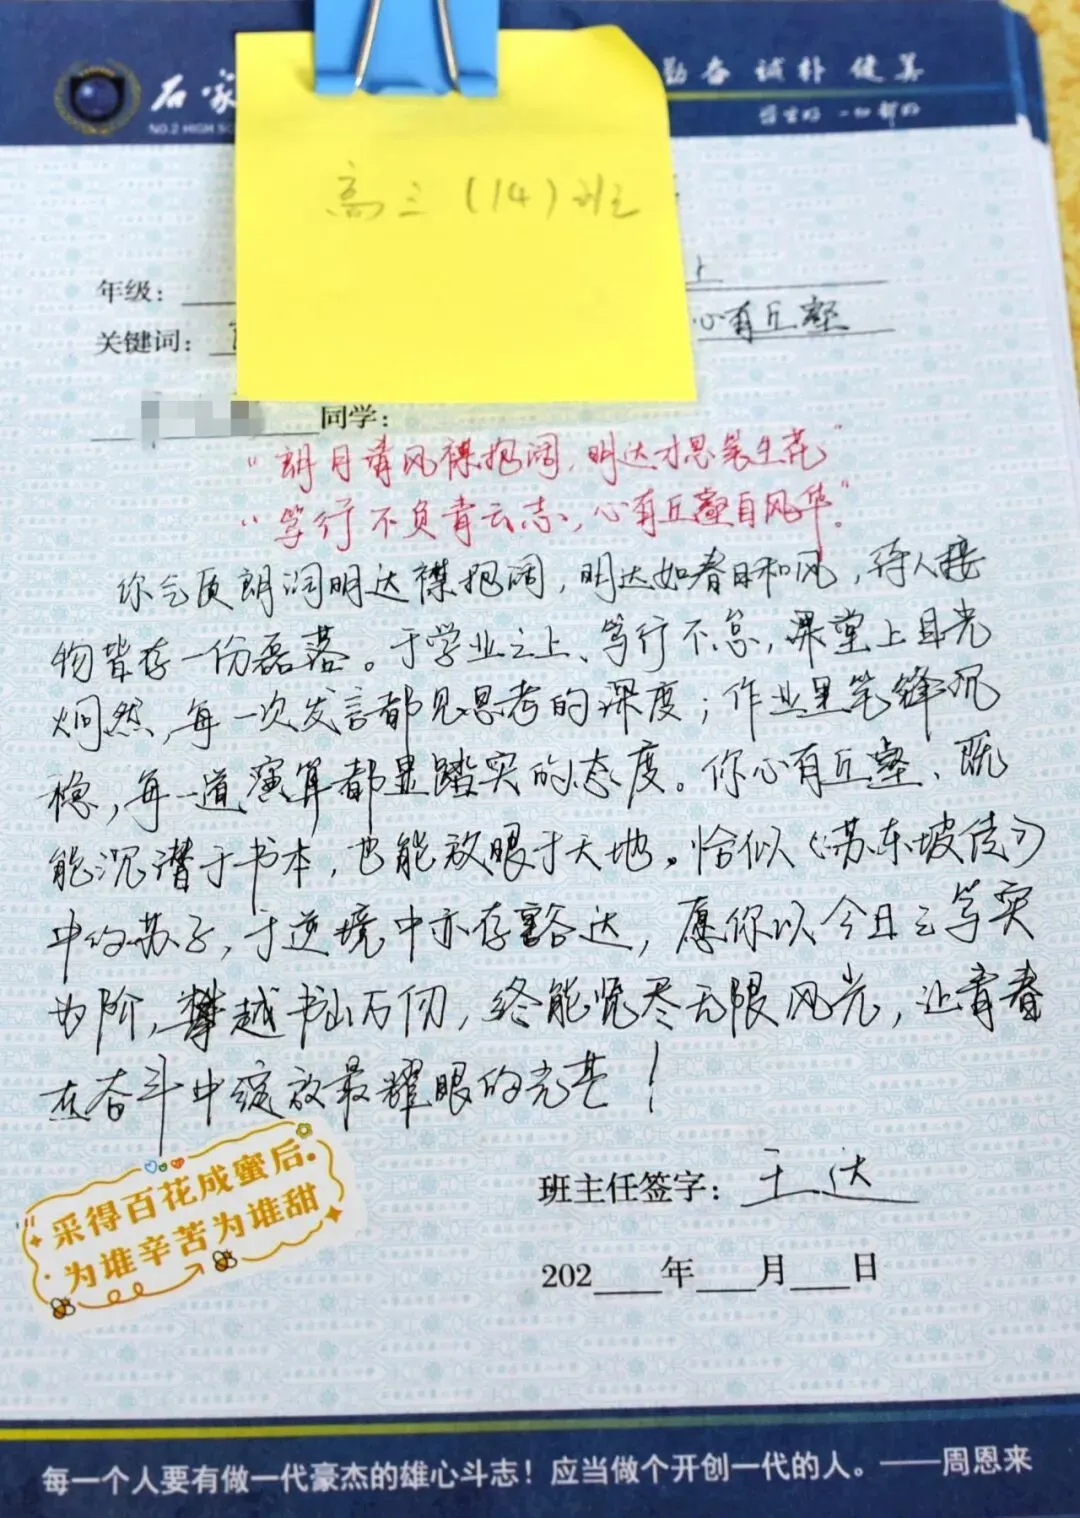 石家
NO.2 HIGH SC
勤奋 诚朴 健美
高三(14)班
年级:
关键词:
心有丘壑
同学:
"朗月清风襟抱阔,明达才思笔生花"
"笃行不负青云志,心有丘壑自风华。"
你气质朗润明达襟抱阔,明达如春日和风,待人接
物皆存一份磊落。于学业之上、笃行不怠,课堂上目光
炯然,每一次发言都见思考的深度;作业里笔锋沉
稳,每一道演算都显踏实的态度。你心有丘壑、既
能沉潜于书本,也能放眼于天地。恰似《苏东坡传》
中的苏子,于逆境中亦存豁达,愿你以今日之笃实
为阶,攀越书山万仞,终能览尽无限风光,让青春
在奋斗中绽放最耀眼的光芒!
采得百花成蜜后.
为谁辛苦为谁甜
班主任签字: 王达
202 年 月 日
每一个人要有做一代豪杰的雄心斗志!应当做个开创一代的人。——周恩来